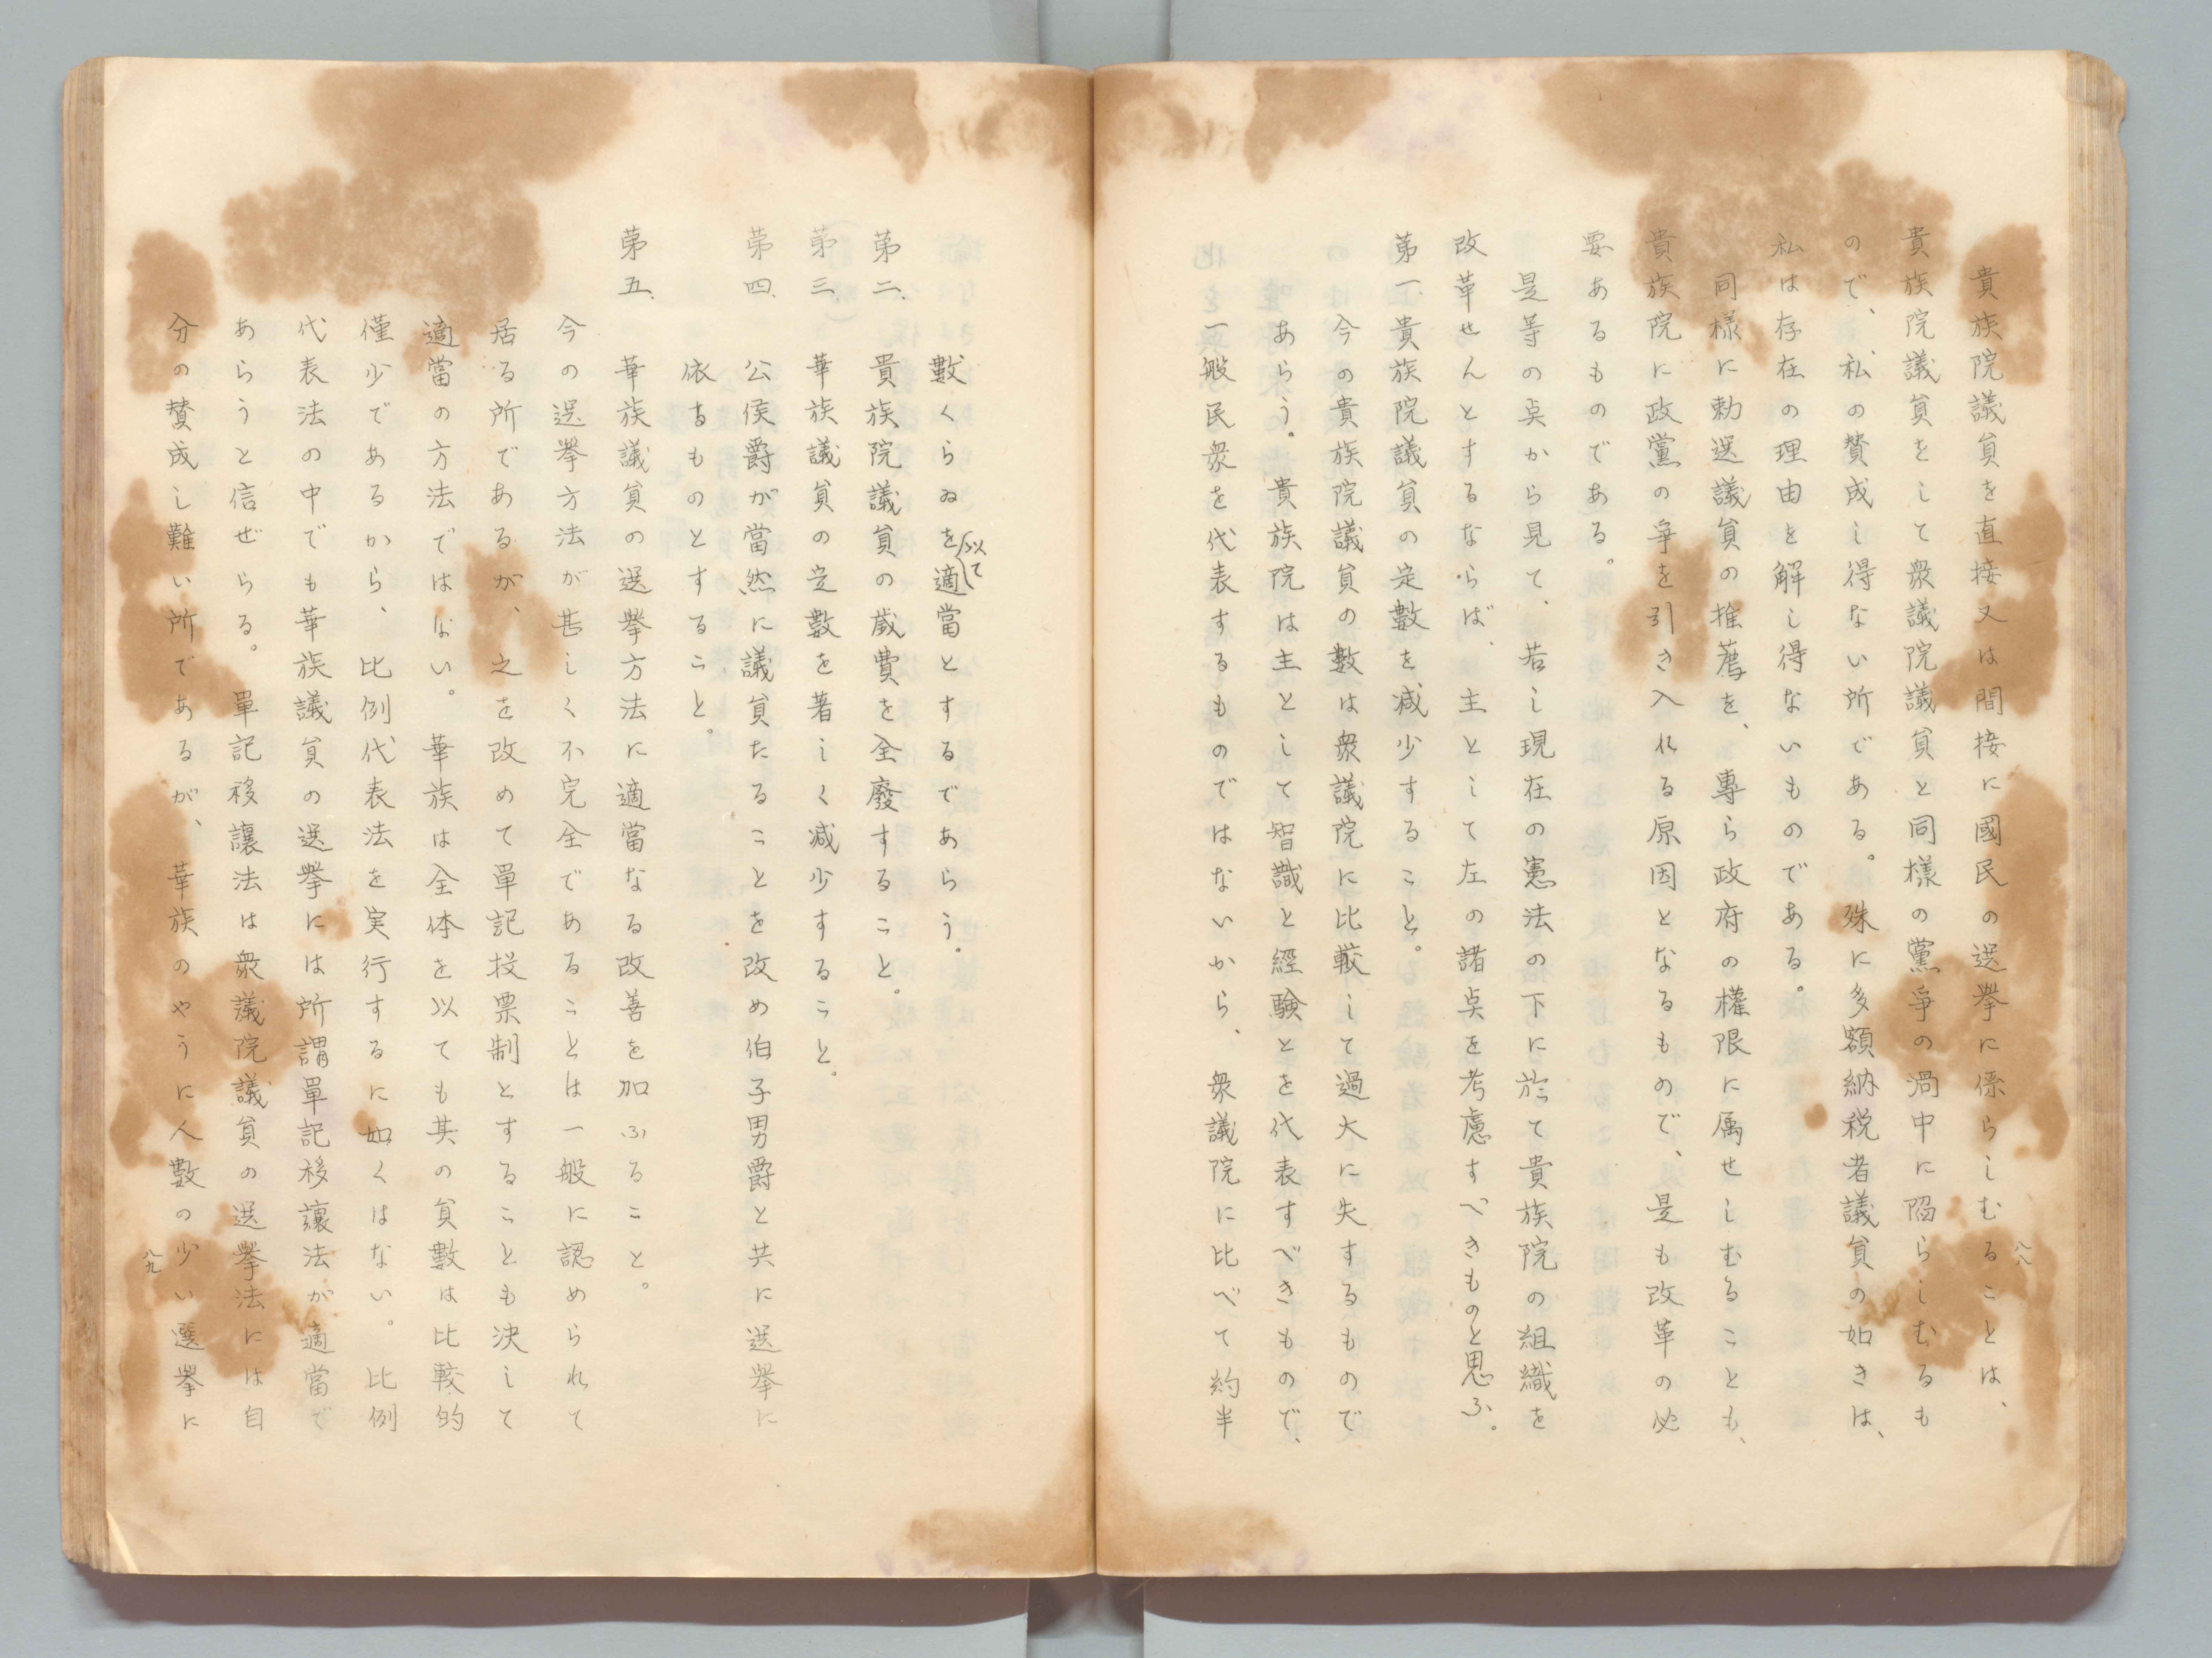 貴族院議員を直接又は間接に國民の選挙に係らしむることは、
貴族院議員をして衆議院議員と同様の黨爭の渦中に陥らしむるも
ので、私の賛成し得ない所である。殊に多額納税者議員の如きは、
私は存在の理由を解し得ないものである。
同様に勅選議員の推薦を、専ら政府の權限に属せしむることも、
貴族院に政黨の爭を引き入れる原因となるもので、是も改革の必
要あるものである。
是等の点から見て、若し現在の憲法の下に於て貴族院の組織を
改革せんとするならば、主として左の諸点を考慮すべきものと思ふ。
第一、貴族院議員の定數を減少すること。
今の貴族院議員の數は衆議院に比較して過大に失するもので
あらう。貴族院は主として智識と經験とを代表すべきもので、
一般民衆を代表するものではないから、衆議院に比べて約半
八八
數くらゐを以て適當とするであらう。
第二、貴族院議員の歳費を全廢すること。
第三、華族議員の定數を著しく減少すること。
第四、公侯爵が當然に議員たることを改め伯子男爵と共に選挙に
依るものとすること。
第五、華族議員の選挙方法に適當なる改善を加ふること。
今の選挙方法が甚しく不完全であることは一般に認められて
居る所であるが、之を改めて單記投票制とすることも決して
適當の方法ではない。華族は全体を以ても其の員數は比較的
僅少であるから、比例代表法を実行するに如くはない。比例
代表法の中でも華族議員の選挙には所謂單記移讓法が適當で
あらうと信ぜらる。單記移讓法は衆議院議員の選挙法には自
分の賛成し難い所であるが、華族のやうに人數の少い選挙に
八九